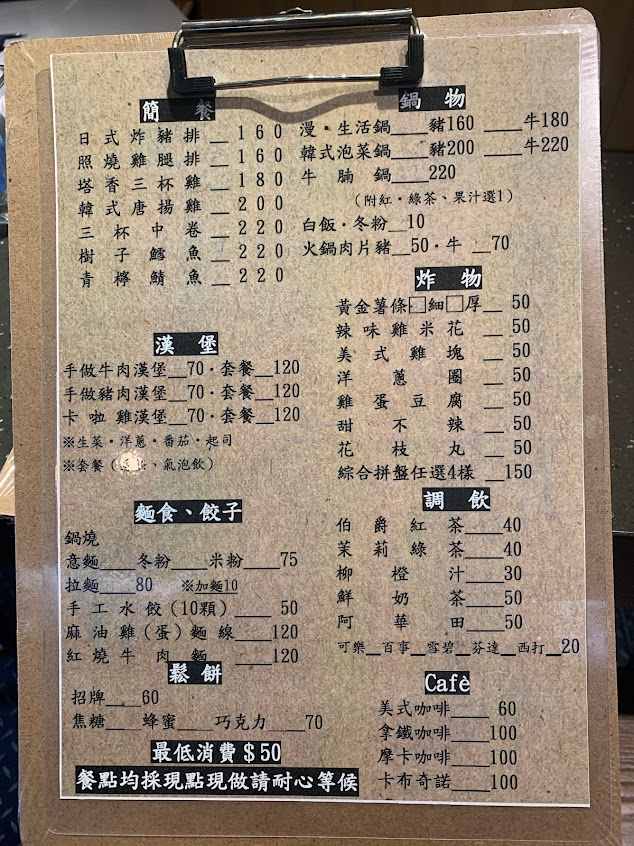 簡 餐
日式炸豬排__160
照燒雞腿排__160
塔香三杯雞__180
韓式唐揚雞__200
三杯中卷__220
樹子鱈魚__220
青檸鯖魚__220
漢 堡
手做牛肉漢堡__70·套餐__120
手做豬肉漢堡__70·套餐__120
卡啦雞漢堡__70·套餐__120
※生菜·洋蔥·番茄·起司
※套餐(、氣泡飲)
麵食、餃子
鍋燒
意麵____冬粉____米粉____75
拉麵____80 ※加麵10
手工水餃(10顆)____50
麻油雞(蛋)麵線____120
紅燒牛肉麵____120
鬆 餅
招牌____60
焦糖____蜂蜜____巧克力____70
最低消費$50
餐點均採現點現做請耐心等候
鍋 物
漫·生活鍋____豬160 ____牛180
韓式泡菜鍋____豬200 ____牛220
牛腩鍋____220
(附紅·綠茶、果汁選1)
白飯·冬粉__10
火鍋肉片豬__50·牛__70
炸 物
黃金薯條□細□厚__50
辣味雞米花__50
美式雞塊__50
洋蔥圈__50
雞蛋豆腐__50
甜不辣__50
花枝丸__50
綜合拼盤任選4樣__150
調 飲
伯爵紅茶____40
茉莉綠茶____40
柳橙汁____30
鮮奶茶____50
阿華田____50
可樂__百事__雪碧__芬達__西打__20
Cafè
美式咖啡____60
拿鐵咖啡____100
摩卡咖啡____100
卡布奇諾____100